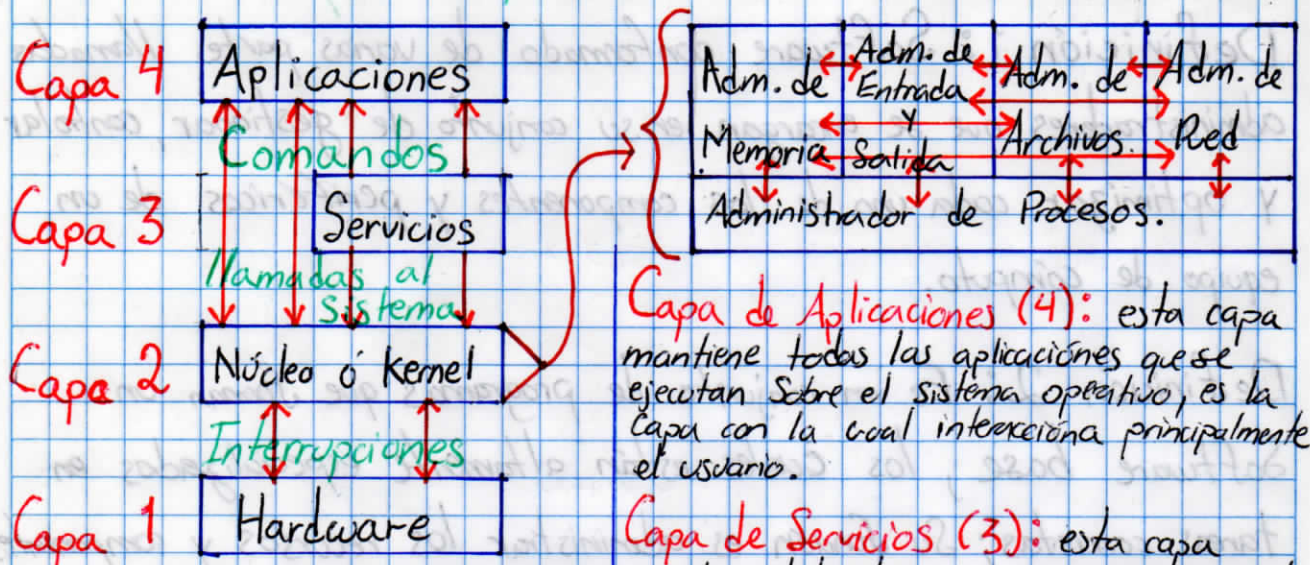 Capa 4
Aplicaciones
Comandos
Capa 3
Servicios
llamadas al
sistema
Capa 2
Núcleo ó Kernel
Interrupciones
Capa 1
Hardware
Adm. de
Memoria
Adm. de
Entrada
y
Salida
Adm. de
Archivos.
Adm. de
Red
Administrador de Procesos.
Capa de Aplicaciones (4): esta capa
mantiene todas las aplicaciónes que se
ejecutan Sobre el sistema operativo, es la
Capa con la cual interacciona principalmente
el usuario.
Capa de Servicios (3): esta capa